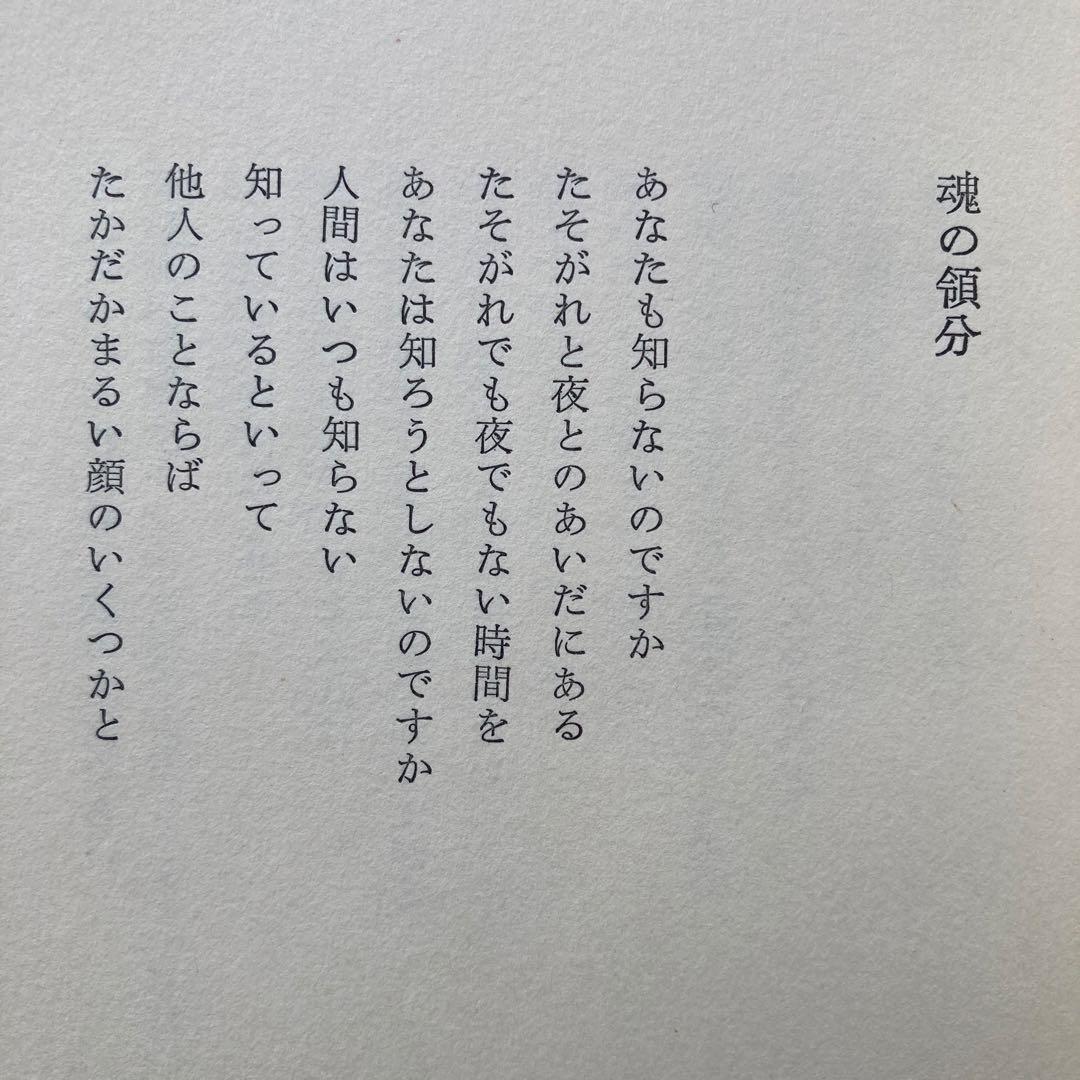 魂の領分
あなたも知らないのですか
たそがれと夜とのあいだにある
たそがれでも夜でもない時間を
あなたは知ろうとしないのですか
人間はいつも知らない
知っているといって
他人のことならば
たかだかまるい顔のいくつかと